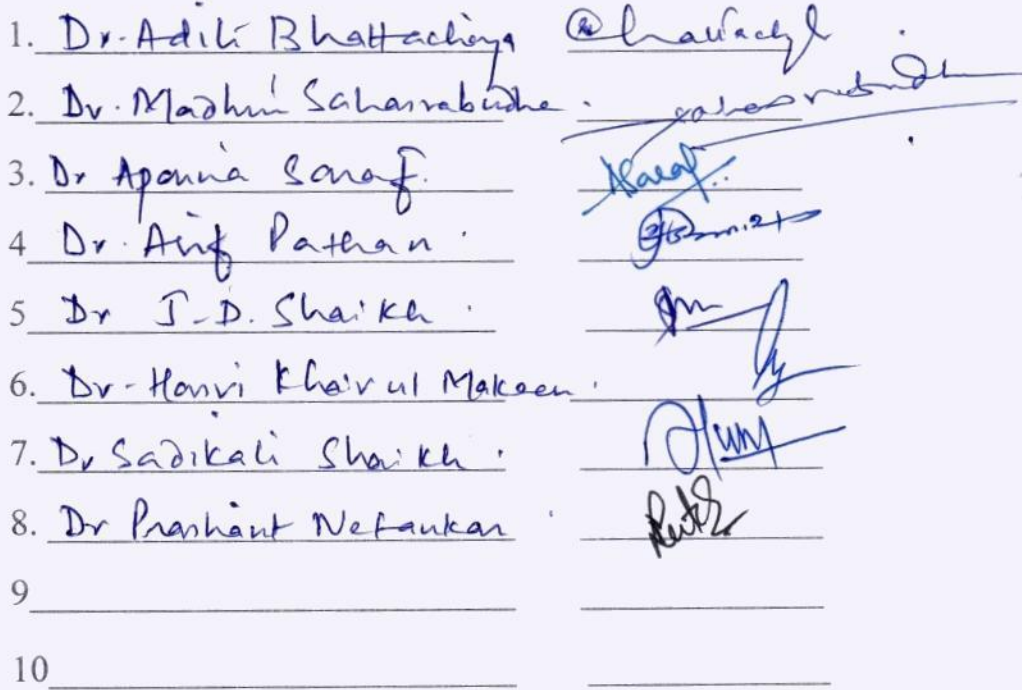 1. Dr. Aditi Bhattacharya
2. Dr. Madhuri Sahasrabudhe.
3. Dr Aparna Saraf.
4 Dr. Arif Pathan.
5 Dr J.D. Shaikh.
6. Dr. Hanvi Khairul Makeen.
7. Dr Sadikali Shaikh.
8. Dr Prashant Netankar
9
10